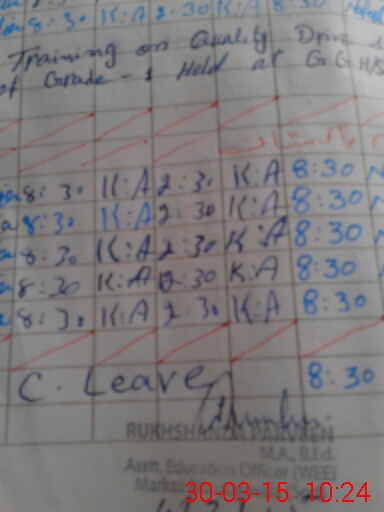 8:30 K:A 2:30 K:A 8:30
Training on Quality Drive
of Grade-1 Held at G.G.H/S
8:30 K:A 2:30 K:A 8:30
8:30 K:A 2:30 K:A 8:30
8:30 K:A 2:30 K:A 8:30
8:30 K:A 2:30 K:A 8:30
8:30 K:A 2:30 K:A 8:30
C. Leave 8:30
RUKHSHANDA PARVEEN
M.A., B.Ed.
Asstt. Education Officer (WEE)
Markaz
30-03-15 10:24